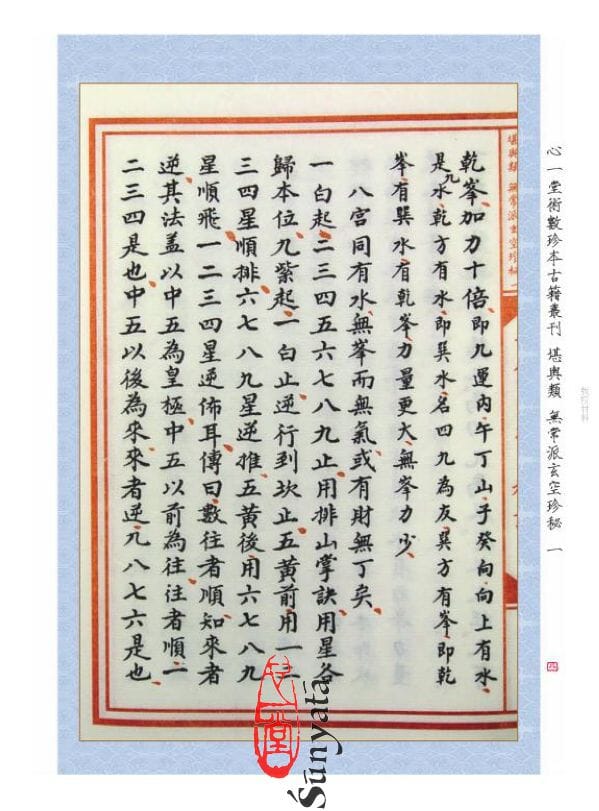 心一堂術數珍本古籍叢刊 堪輿類 無常派玄空珍秘 一
堪輿類 無常派玄空珍秘 一
乾峯加力十倍即九運內午丁山子癸向向上有水
是九水乾方有水即巽水名四九為友巽方有峯即乾
峯有巽水有乾峯力量更大無峯力少
八宮同有水無峯而無氣或有財無丁矣
一白起二三四五六七八九止用排山掌訣用星各
歸本位九紫起一白止逆行到坎止五黃前用一二
三四星順排六七八九星逆推五黃後用六七八九
星順飛一二三四星逆佈耳傳曰數往者順知來者
逆其法蓋以中五為皇極中五以前為往往者順一
二三四是也中五以後為來來者逆九八七六是也
心一堂
Śūnyatā